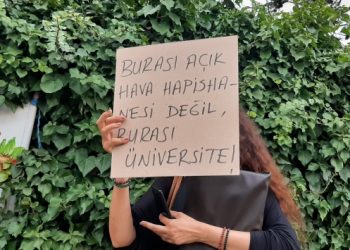 BURASI AÇIK
HAVA HAPİSHA-
NESİ DEĞİL,
BURASI
ÜNİVERSİTE!